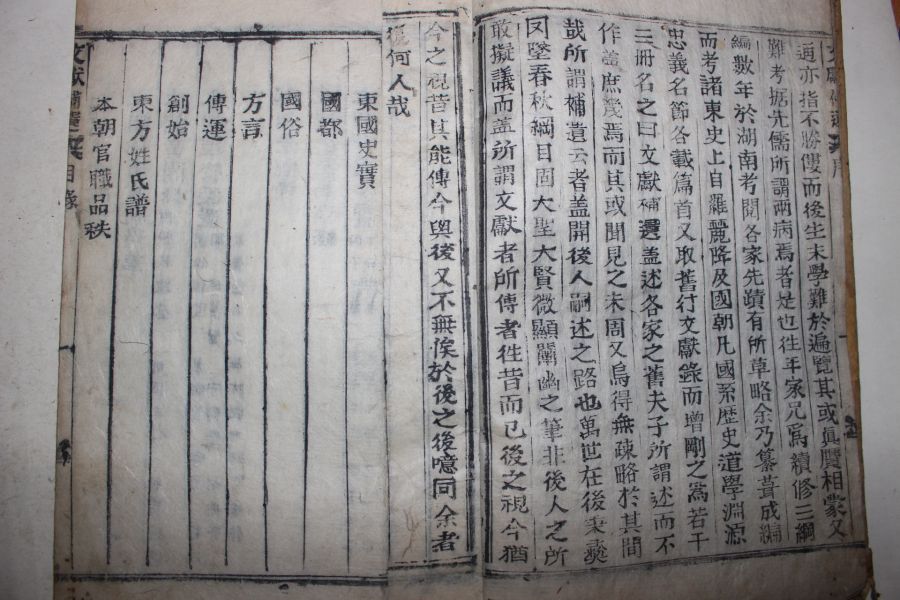 文獻補遺 序
適亦指不勝僂而後生末學難於遍覽其或眞贗相蒙又
難考据先儒所謂兩病焉者是也徃年家兄爲續修三綱
編數年於湖南考閱各家先蹟有所草略余乃纂葺成編
而考諸東史上自羅麗降及國朝凡國系歷史道學淵源
忠義名節各載篇首又取舊行文獻錄而增刪之爲若干
三冊名之曰文獻補遺盖述各家之舊夫子所謂述而不
作盖庶幾焉而其或聞見之未周又烏得無疎略於其間
哉所謂補遺云者盖開後人嗣述之路也萬世在後秉彛
罔墜春秋綱目固大聖大賢微顯闡幽之筆非後人之所
敢擬議而盖所謂文獻者所傳者徃昔而已後之視今猶
今之視昔其能傳今與後又不無俟於後之後噫同余者
復何人哉
東國史實
國都
國俗
方言
傳運
創始
東方姓氏譜
本朝官職品秩
文獻補遺 目錄